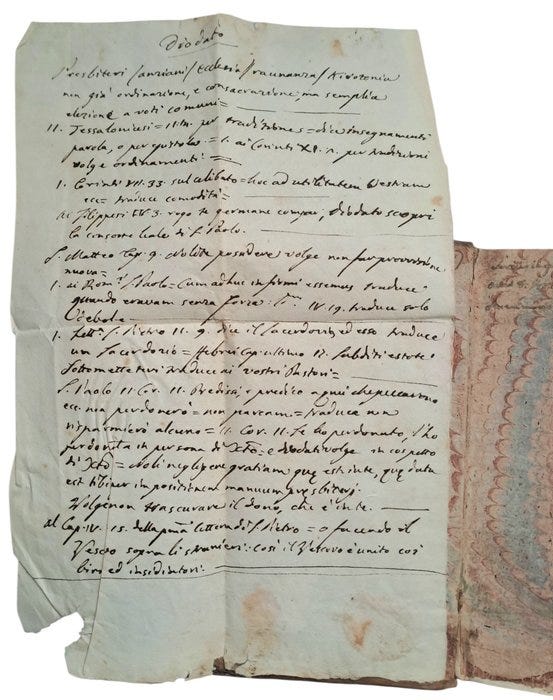 Diodato
Presbiteri / anziani / Ecclesia / raunanza / Kirotonia
non già ordinazione, e consacrazione, ma semplice
elezione a voti comuni =
II. Tessalonicesi = II. per traditiones = dice insegnamenti
parola, o per = I. ai Corinti XI. 2. per tradizioni
volge ordinamenti =
I. Corinti VII. 33. sul celibato = hoc ad utilitatem vestram
ecc = traduce comodità =
Ai Filippesi IV 3. rogo te germane compar, Diodato scopri
la consorte di S. Paolo.
S. Matteo Cap. 9. Nolite possidere volge non far provvisione
nuova =
I. ai Rom. S. Paolo = Cum adhuc infirmi essemus traduce
quando eravam senza forza. IV. 19. traduce solo
debole.
I. Lett. S. Pietro II. 9. dice il Sacerdozio, ed esso traduce
un Sacerdozio = Hebrei Cap. ultimo 17. Subditi estote
sottomettetevi traduce ai vostri Pastori =
S. Paolo II. Cor. 11. Predissi, e predico a quei che peccarono
ecc. non perdonerò = non parcam = traduce non
risparmierò alcuno = II. Cor. II. Se ho perdonato, l'ho
perdonato in persona di Xto: e Diodati volge in cospetto
di Xto = Noli negligere gratiam que est in te, que data
est tibi per impositionem manuum presbiterj.
Volge non trascurare il dono, che è in te.
Al Cap. IV. 15. della prima lettera di S. Pietro = o facendo il
Vescovo sopra li stranieri: così il Vescovo è unito coi
ed insidiatori: